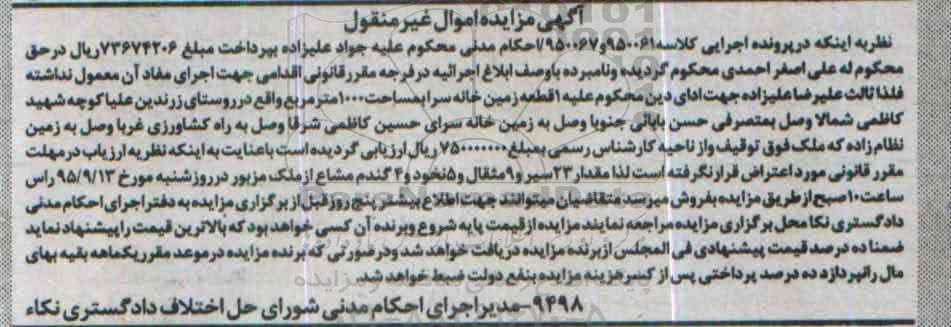 آگهی مزایده اموال غیر منقول
نظر به اینکه در پرونده اجرایی کلاسه ۹۵۰۰۶۱ و ۹۵۰۰۶۷/احکام مدنی محکوم علیه جواد علیزاده بپرداخت مبلغ ۷۳۶۷۴۲۰۶ ریال در حق
محکوم له علی اصغر احمدی محکوم گردیده و نامبرده با وصف ابلاغ اجرائیه در فرجه مقرر قانونی اقدامی جهت اجرای مفاد آن معمول نداشته
فلذا ثالث علیرضا علیزاده جهت ادای دین محکوم علیه ۱ قطعه زمین خانه سرا بمساحت ۱۰۰۰ متر مربع واقع در روستای زرندین علیا کوچه شهید
کاظمی شمالا وصل بمتصرفی حسن بابائی جنوبا وصل به زمین خانه سرای حسین کاظمی شرقا وصل به راه کشاورزی غربا وصل به زمین
نظام زاده که ملک فوق توقیف و از ناحیه کارشناس رسمی بمبلغ ۷۵۰۰۰۰۰۰۰ ریال ارزیابی گردیده است با عنایت به اینکه نظریه ارزیاب در مهلت
مقرر قانونی مورد اعتراض قرار نگرفته است لذا مقدار ۲۳ سیر و ۹ مثقال و ۵ نخود و ۴ گندم مشاع از ملک مزبور در روز شنبه مورخ ۹۵/۹/۱۳ راس
ساعت ۱۰ صبح از طریق مزایده بفروش میرسد متقاضیان میتوانند جهت اطلاع بیشتر پنج روز قبل از برگزاری مزایده به دفتر اجرای احکام مدنی
دادگستری نکا محل برگزاری مزایده مراجعه نمایند مزایده از قیمت پایه شروع و برنده آن کسی خواهد بود که بالاترین قیمت را پیشنهاد نماید
ضمنا ده درصد قیمت پیشنهادی فی المجلس از برنده مزایده دریافت خواهد شد و در صورتی که برنده مزایده در موعد مقرر یکماهه بقیه بهای
مال را نپردازد ده درصد پرداختی پس از کسر هزینه مزایده بنفع دولت ضبط خواهد شد.
۹۴۹۸-مدیر اجرای احکام مدنی شورای حل اختلاف دادگستری نکاء